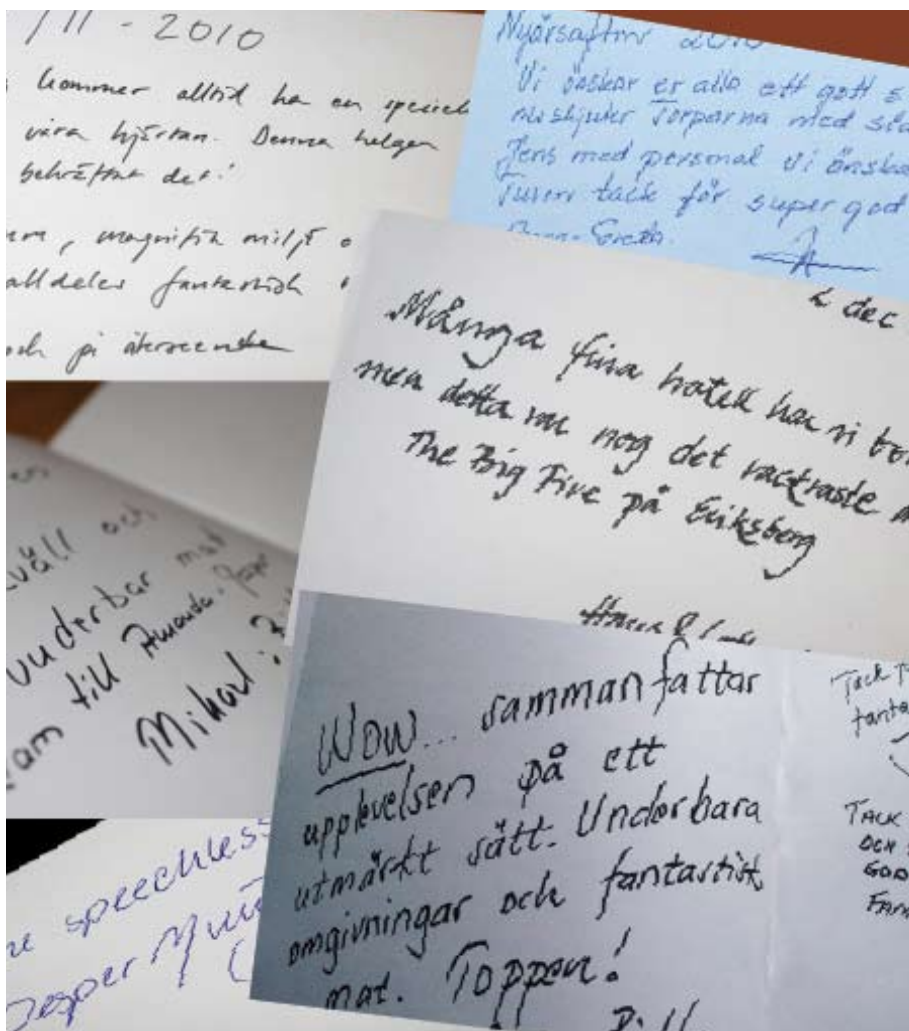 /11 - 2010
kommer alltid ha en speciell
våra hjärtan. Denna helgen
bekräftar det!
magnifik miljö
alldeles fantastisk
och på återseende
Nyårsafton 2010
Vi önskar er alla ett gott
med
Jens med personal Vi önskar
tack för super god
2 dec
Många fina hotell har vi
men detta nog det vackraste
The Big Five på Eriksberg
kväll och
underbar mat
fram till Amanda
Mikael
Wow... sammanfattar
upplevelsen på ett
utmärkt sätt. Underbara
omgivningar och fantastisk
mat. Toppen!
Tack
fanta
TACK
OCH
GOD
FAN
speechless
Jesper